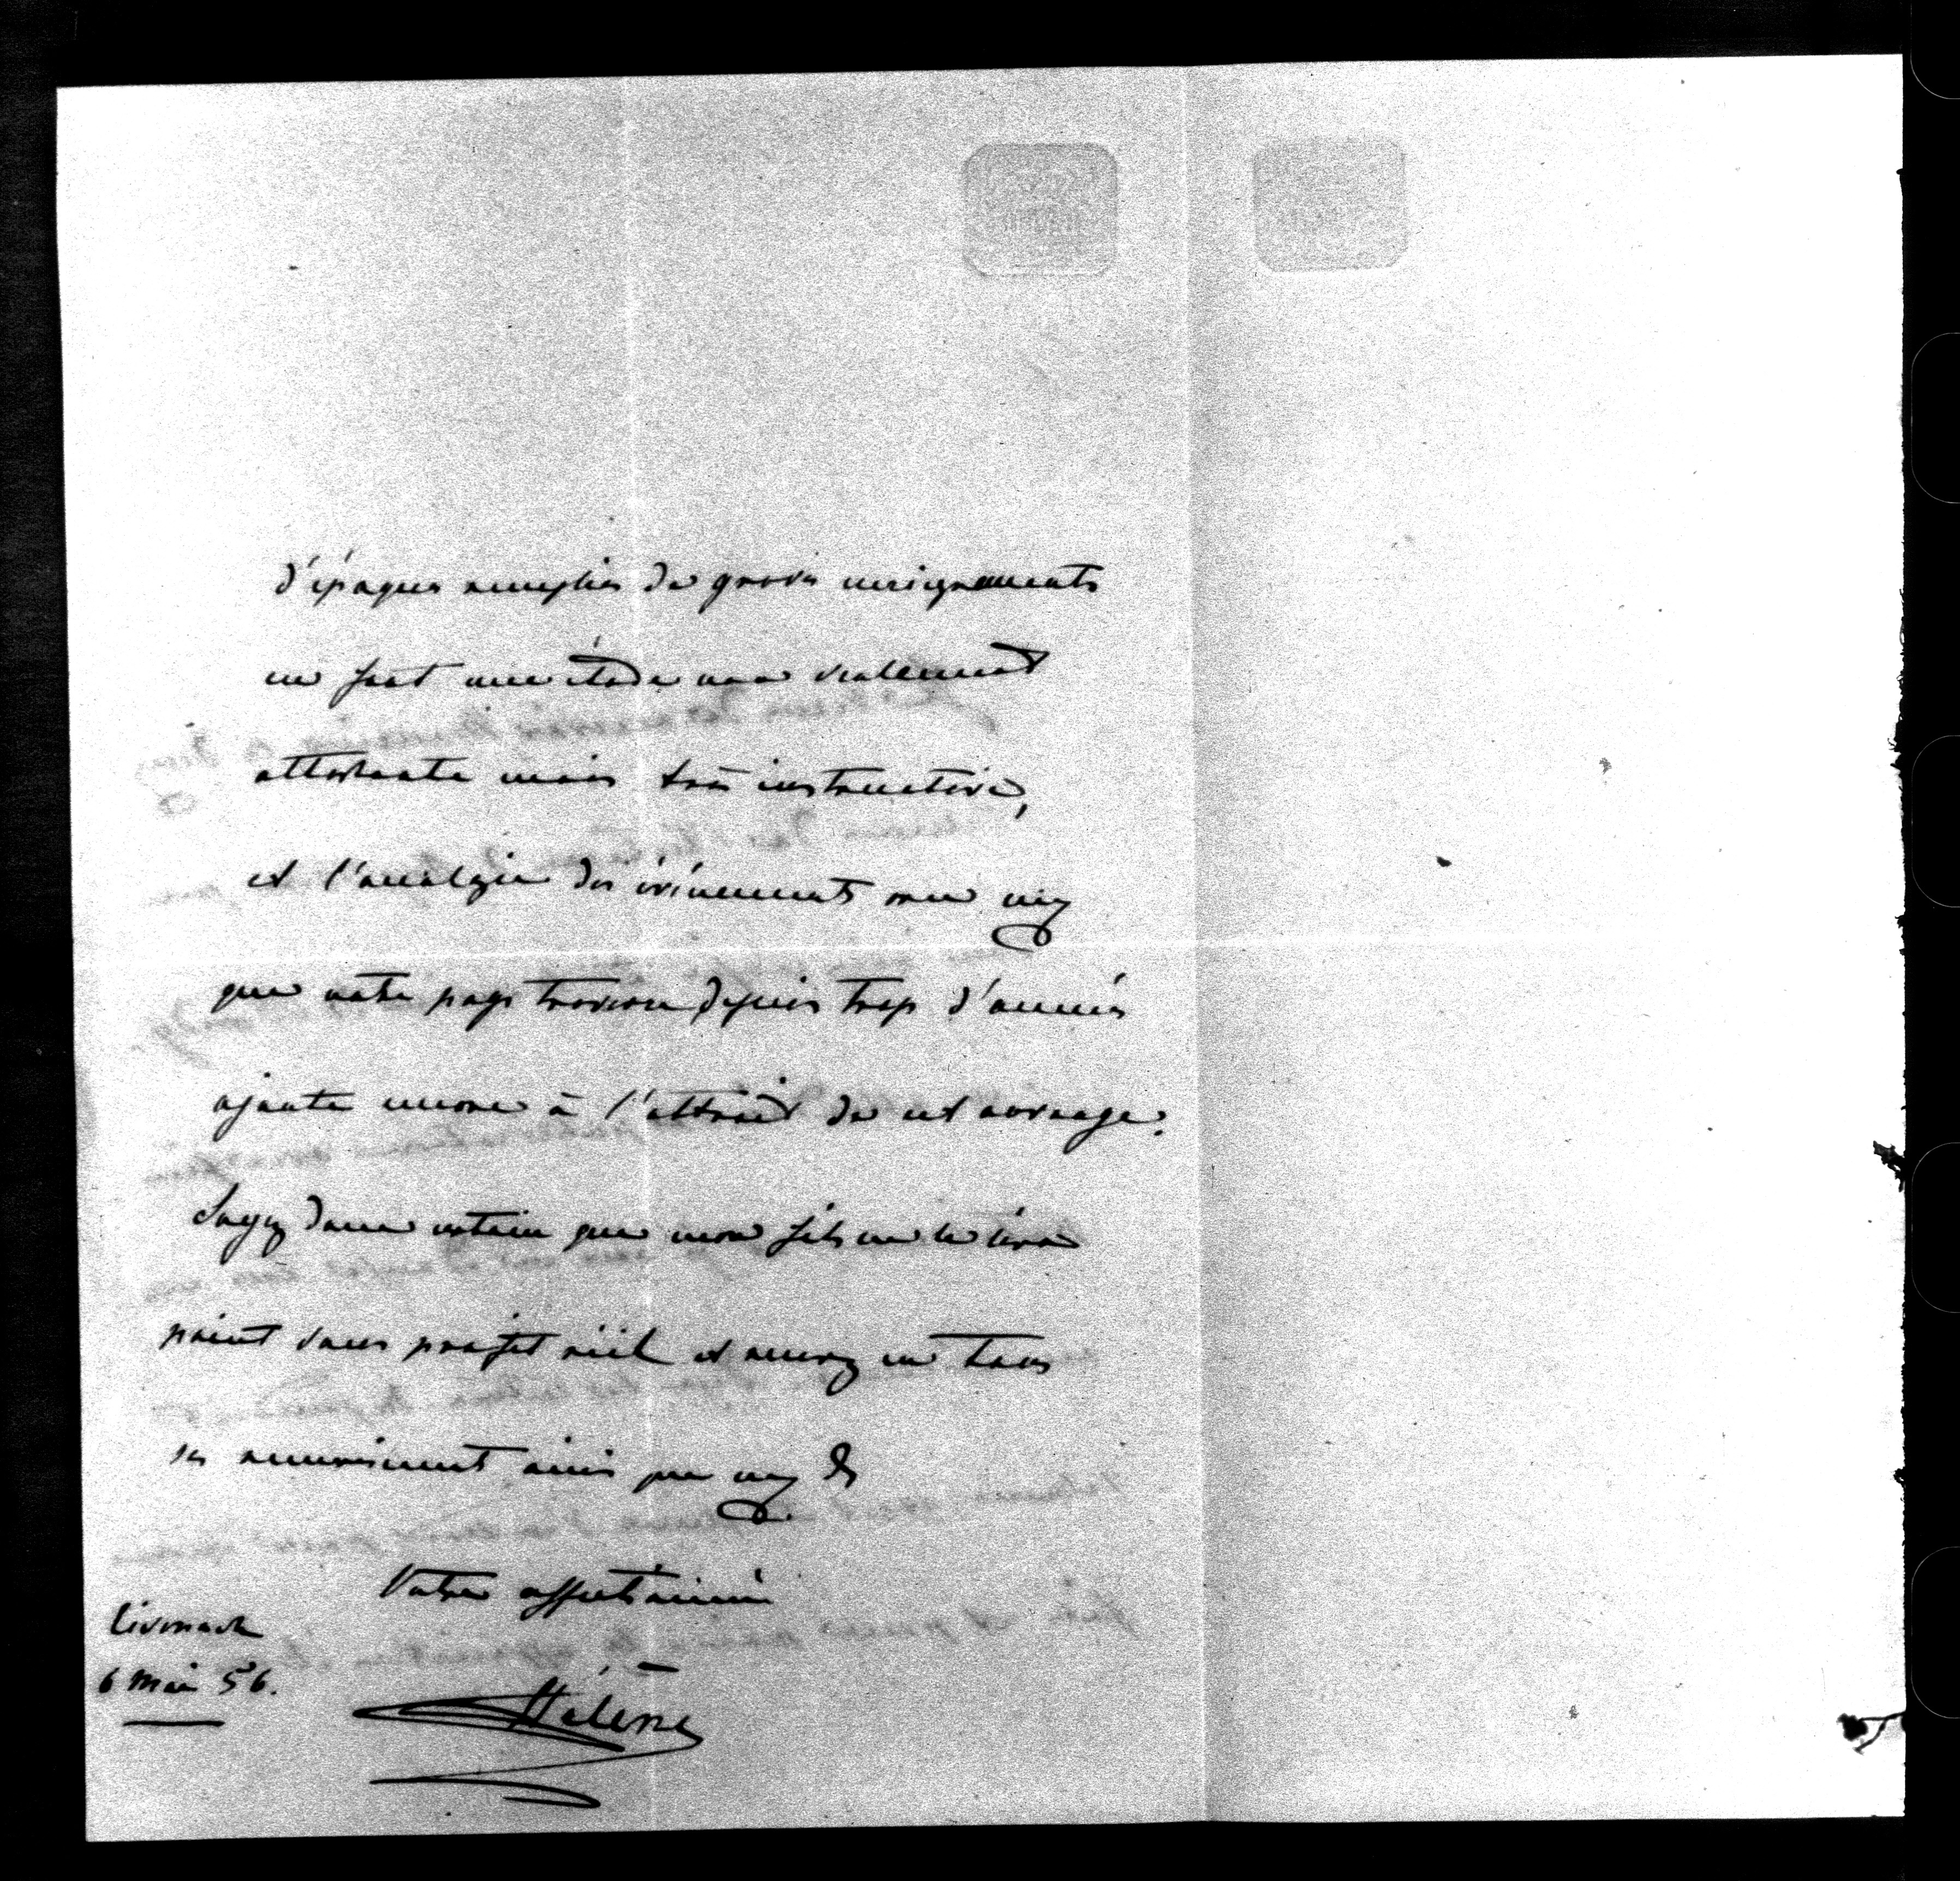 d'époques remplies de graves enseignements
en font une étude non seulement
attachante mais très instructive,
et l'analogie des événements avec ceux
que notre pays traverse depuis trop d'années
ajoute encore à l'attrait de cet ouvrage.
Soyez donc certain que mon fils ne le lira
point sans profit réel et recevez en tous
ses remerciements ainsi que ceux de
Votre affectionnée
Hélène
Eisenach
6 Mai 56.